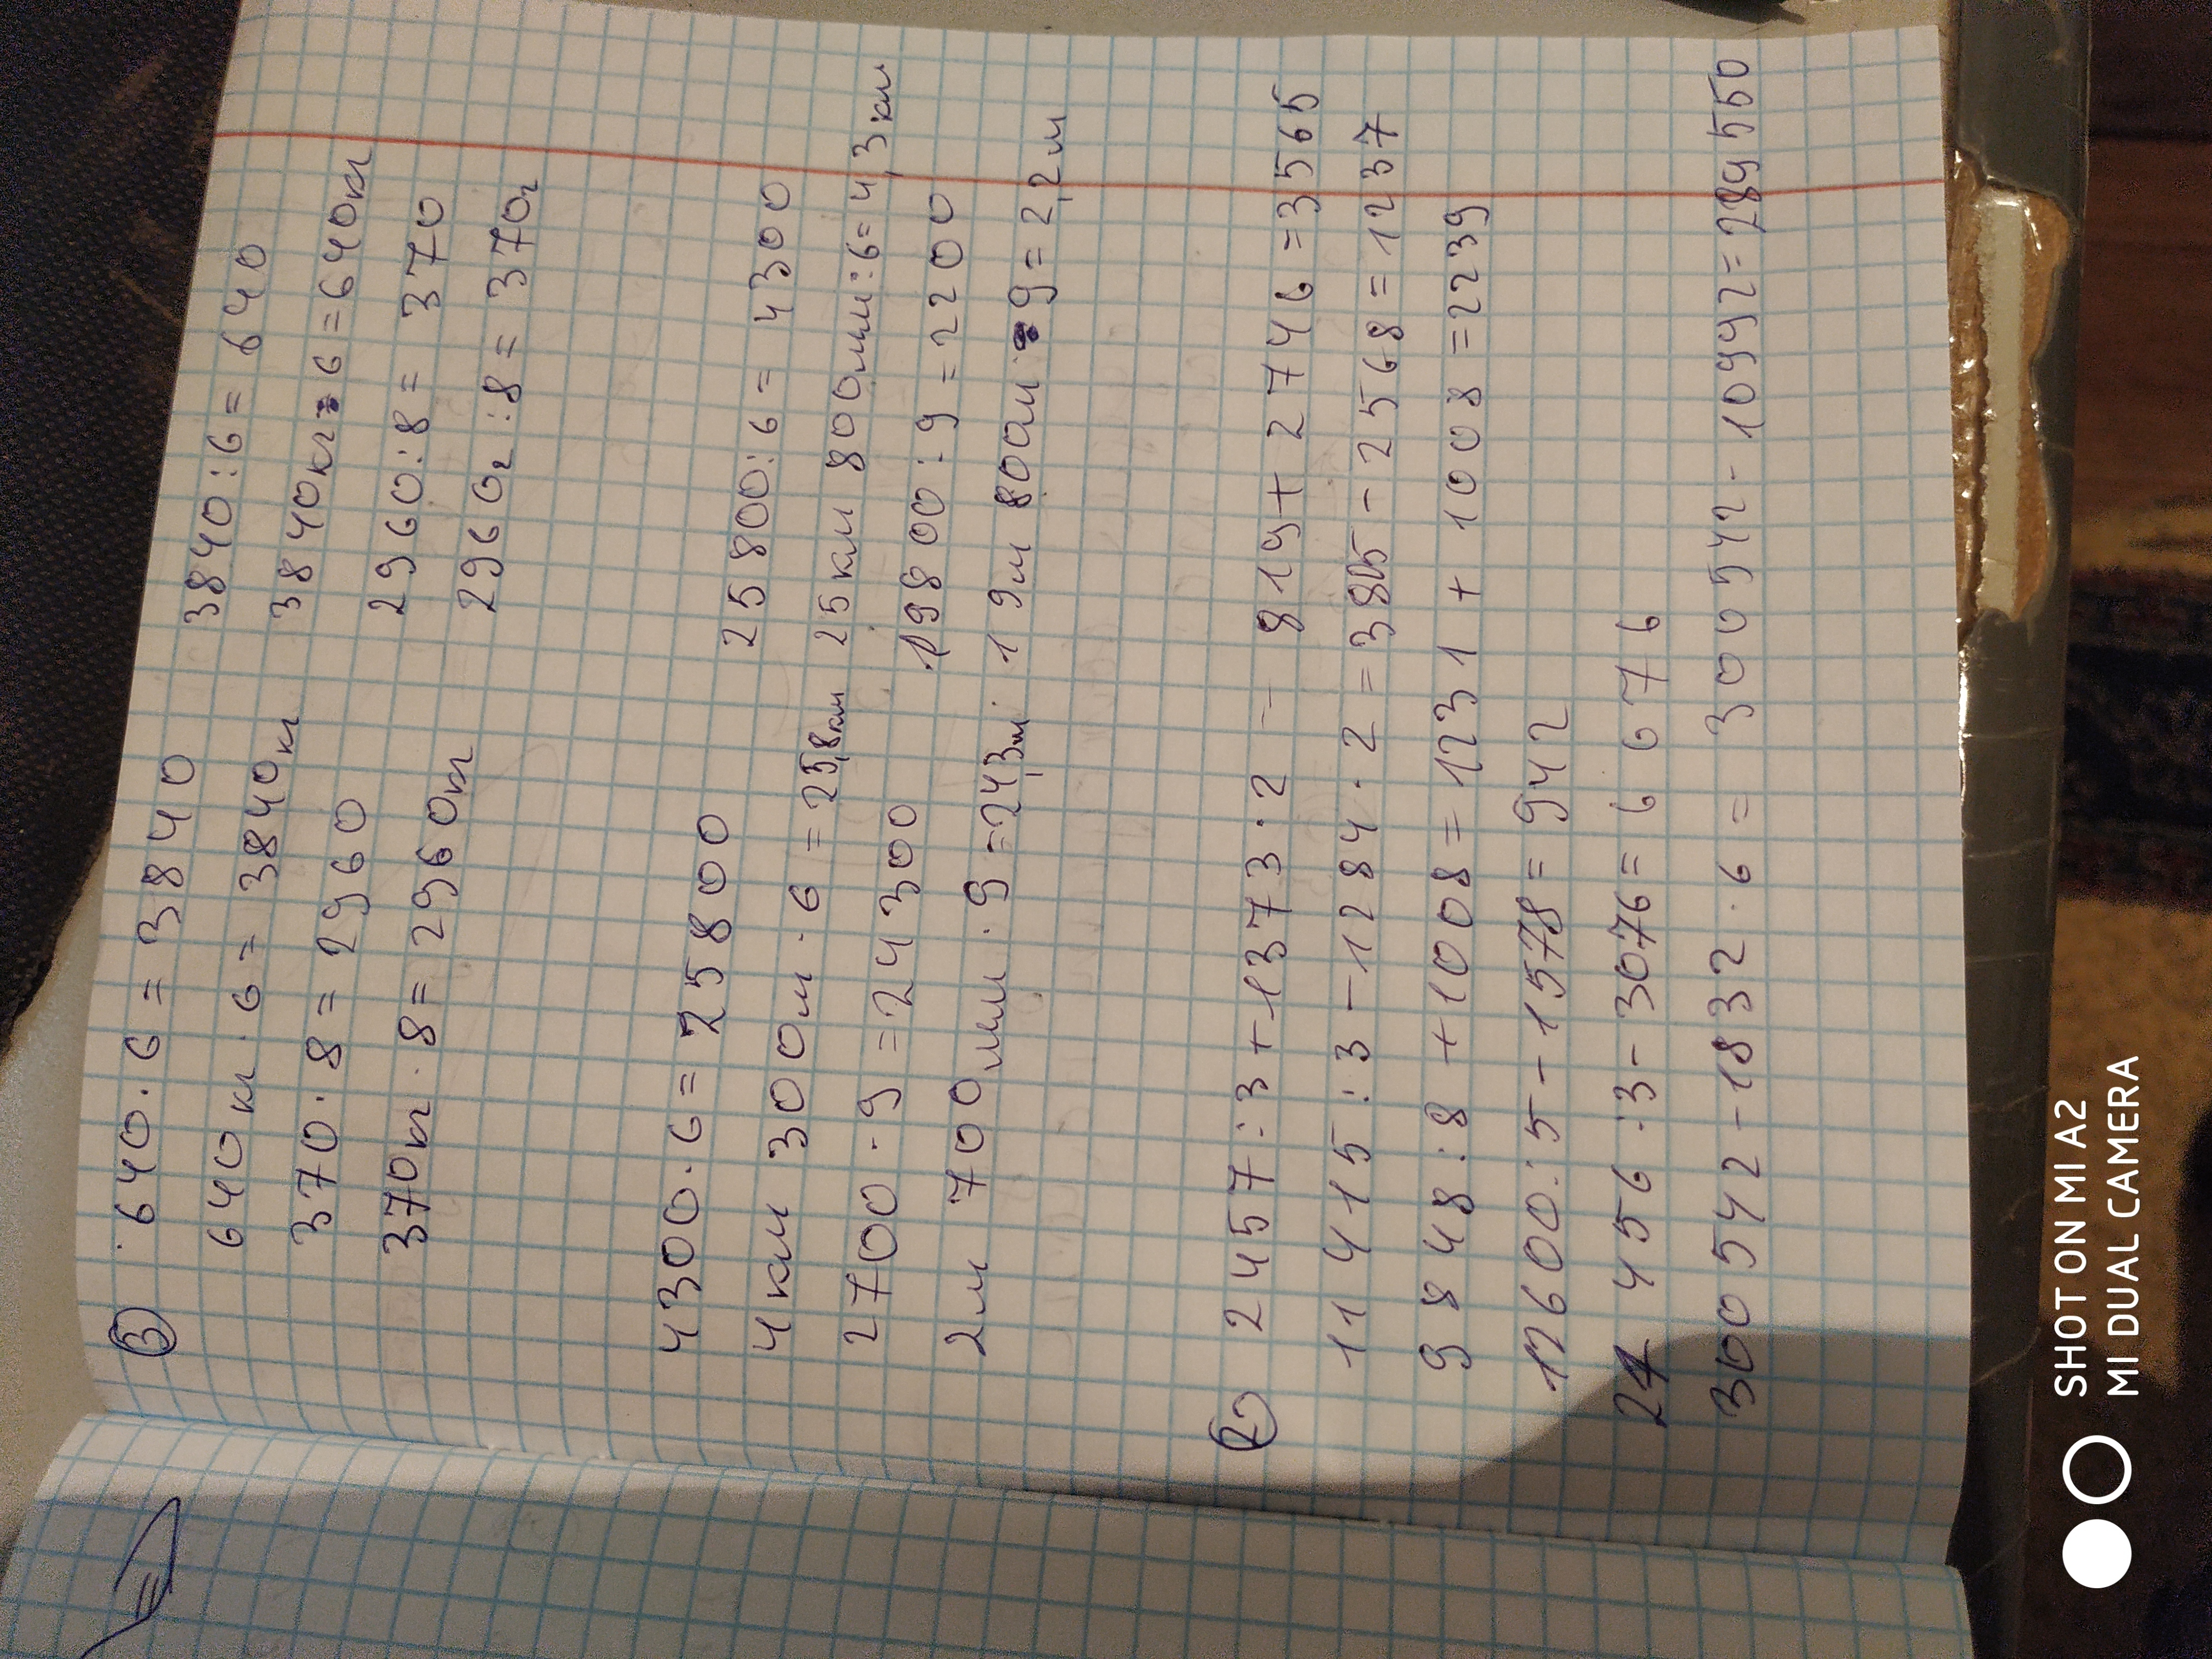 ③ 640·6=3840 3840:6=640
640кг·6=3840кг 3840кг:6=640кг
370·8=2960 2960:8=370
370кг·8=2960кг 2960г:8=370г
4300·6=25800 25800:6=4300
4км 300м·6=25,8км 25км 800мм:6=4,3км
2700·9=24300 19800:9=2200
2м 700мм·9=24,3м 19м 800м:9=2,2м
② 2457:3+1373·2=819+2746=3565
11415:3-1284·2=3805-2568=1237
9848:8+1008=1231+1008=2239
12600:5-1578=942
24456:3-3076=66676
300542-1832·6=300542-10992=289550
SHOT ON MI A2
MI DUAL CAMERA